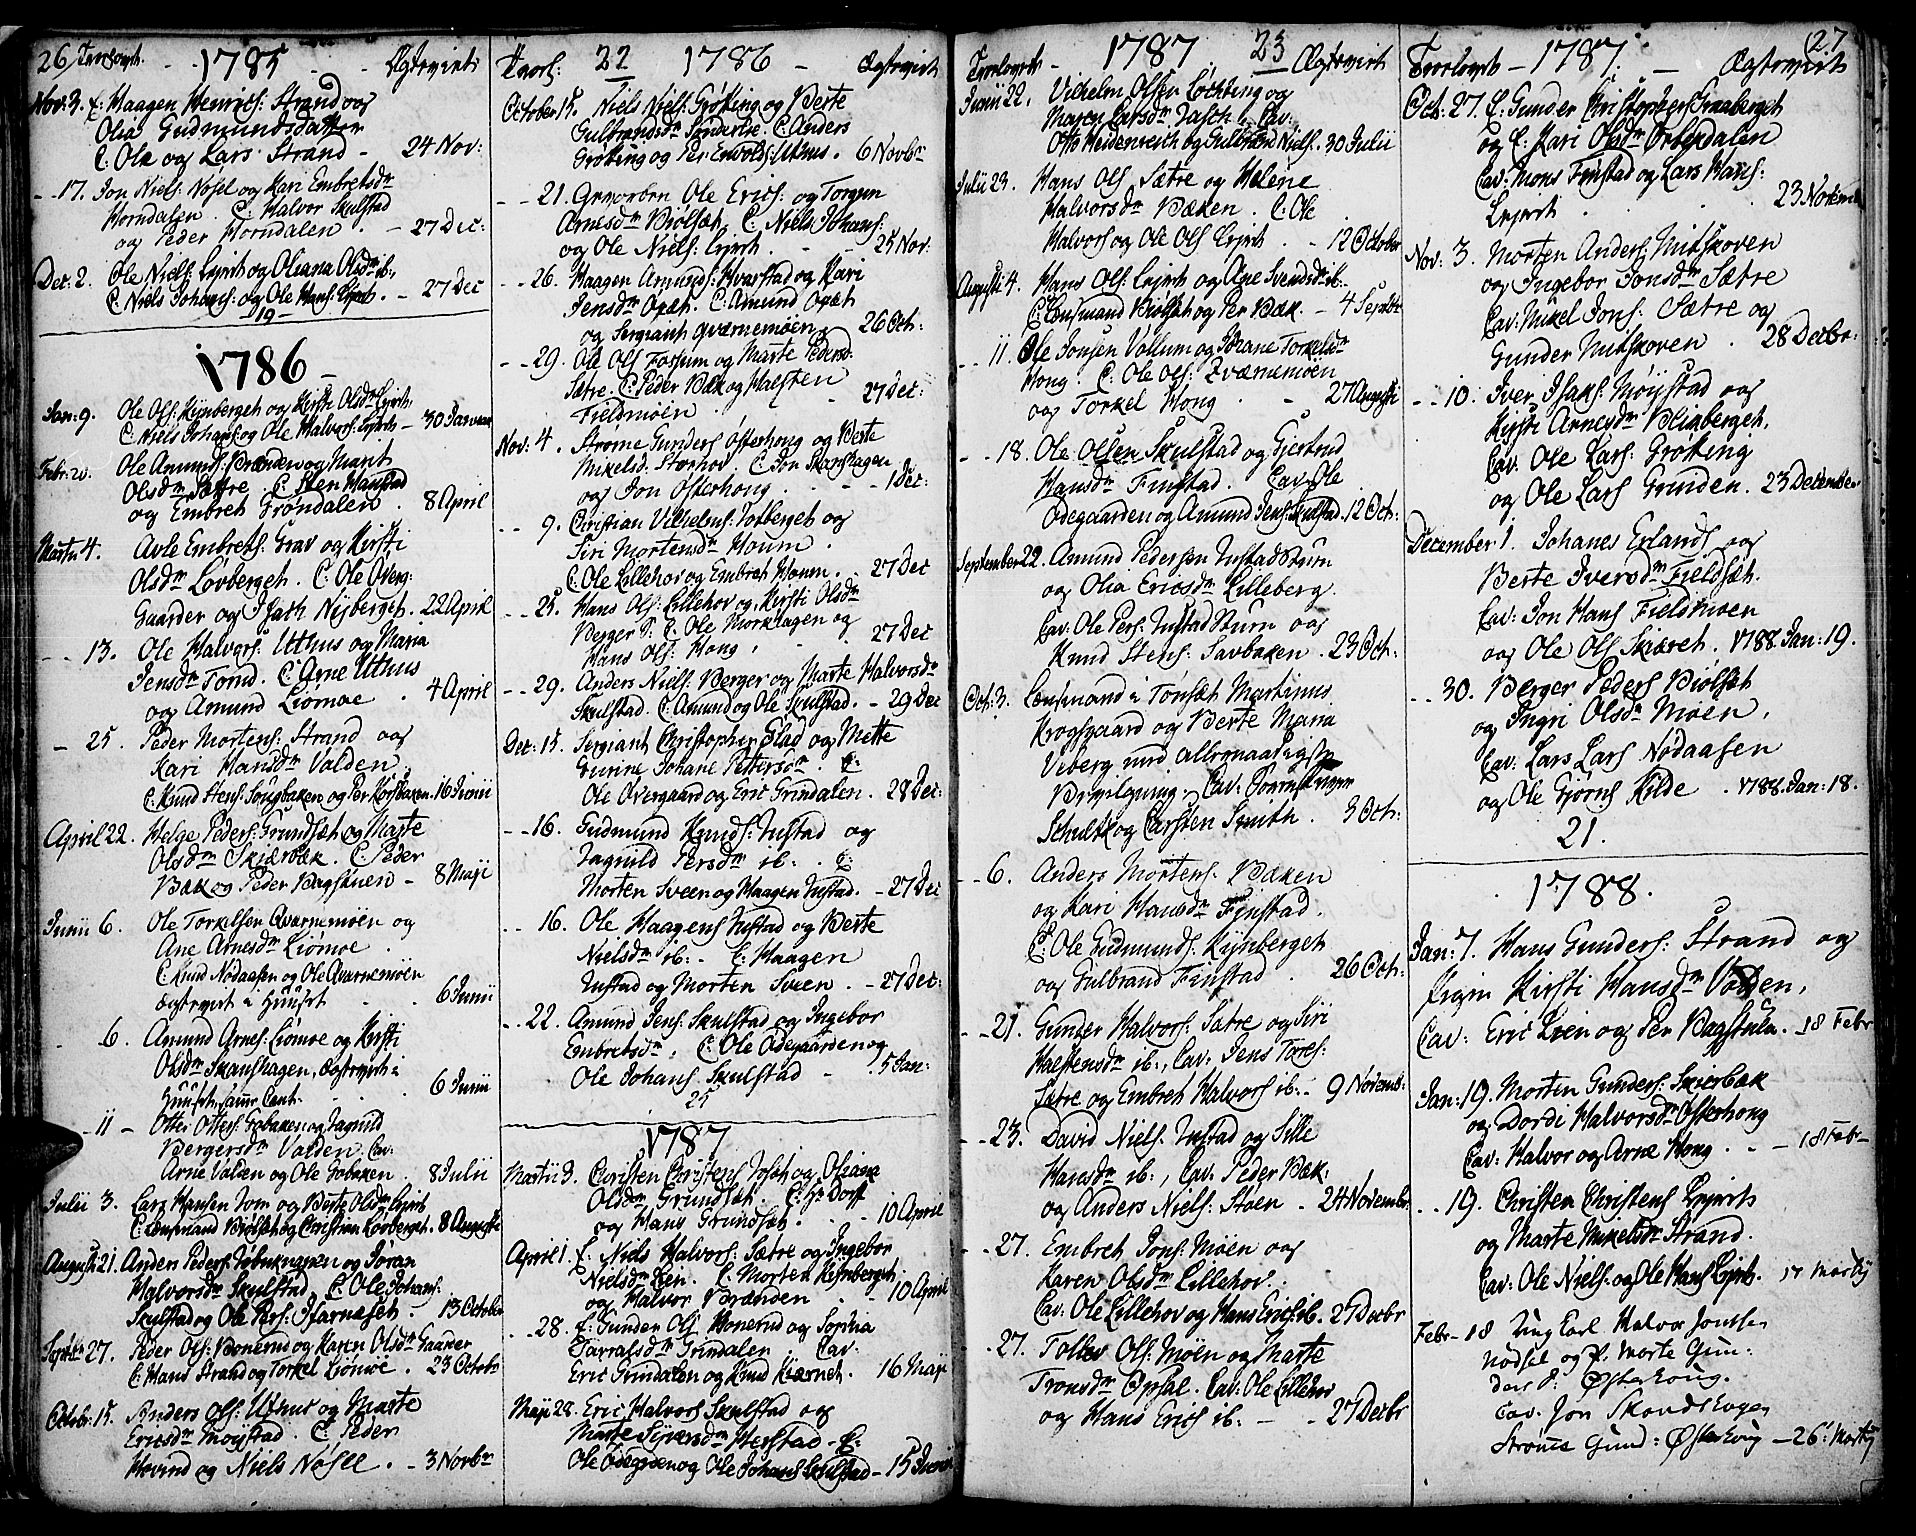 26 Trolovede. 1785 Ægteviede
Nov: 3. E: Haagen Henrics: Strand og
Olia Gudmundsdatter
C: Ole og Lars Strand - 24 Nov:
- - 17. Jon Niels: Nøsel og Kari Embretsdr
Horndalen. C: Halvor Skulstad
og Peder Horndalen. - 27 Dec:
Dec: 2. Ole Niels: og Oliana Olsdr ib:
C. Niels Johans: og Ole Hans: - 27 Dec
- 19 -
1786 -
Jan: 9. Ole Ols: Kynberget og Kirsti Olsdr
C: Niels Johans: og Ole Halvors: - 30 Januar
Febr: 20. Ole Amunds: Brænden og Marit
Olsdr Sættre. C: Sten Haustad
og Embret Frøndalen. 8 April
Martii 4. Avle Embrets: Grav og Kirsti
Olsdr Løvberget. C: Ole Overg:
Gaarder og Isach Nisberget. 22 April
- - 13. Ole Halvors: Uthus og Maria
Jensdr Tomd. C: Arne Uthus
og Amund Liømoe. 4 April
- 25. Peder Mortens: Strand og
Kari Hansdr Valden
C: Knud Stens: og Per 16 Junii
April 22. Helge Peders: Grundsæt og Marte
Olsdr Skiærbæk. C: Peder
Bæk og Peder Bagstuen - 8 Maji
Junii 6. Ole Torkelsen Qvarnemoen og
Ane Arnesdr Liømoe.
C: Knud Nødaasen og Ole Qvarnemoen
6 Junii
- 6. Amund Arnes: Liømoe og Kirsti
Olsdr Skanshagen,
6 Junii
- 11 - Otter Otters: Gobaken og Jagnild
Bergersdr Valden. Cav:
Arne Valden og Ole Gobaken. 8 Julii
Julii 3. Lars Hansen og Berte Olsdr
C: Lensmand Biølset og Christian Løvberget. 8 Augusti
Augusti 21. Anders Peders: og Joran
Halvorsdr Skulstad. C: Ole Johans:
Skulstad og Ole Pers: 13 October
Septbr 27. Peder Ols: Bonerud og Karen Olsdr Gaarder
C: Hans Strand og Torkel Liømoe. 23 Octobr
Octobr: 15. Anders Ols: Uthus og Marte
Ericsdr Moystad. C: Peder
Hovind og Niels Nøsel. - 3 Novbr
Trol: 22 1786 - Ægteviede
October 15. Niels Niels: Grøtting og Berte
Gulbrandsdr C: Anders
Grøtting og Per Envolds: Uthus. 6 Novbr
- - 21. Ole Erics: og Torgun
Arnesdr Biølset. C. Niels Johans:
og Ole Niels: 25 Nov:
- - 26. Haagen Amunds: Hvarstad og Kari
Jensdr Opæt. C: Amund Opæt
og Sergiant Qværnemoen 26 Och:
- - 29. Ole Ols: Fossum og Marte Pedersd:
Sætre. C: Peder Bæk og Halsten
Fieldmoen. - 27 Dec:
Nov: 4. Strøme Gunders: Østerhong og Berte
Mikelsd: Storhov. C: Jon Skanshagen
og Jon Østerhong. - 1 Dec:
- - 9. Christian Vilhelms: Lovberget og
Siri Mortensdr Houm.
C: Ole Lillehov og Embret Houm. - 27 Dec
- - 25. Hans Ols: Lillehov og Kirsti Olsdr
Berger C: Ole Morkhagen og
Hans Ols: Hong. 27 Dec
- - 29. Anders Niels: Berger og Marte Halvorsdr
Skulstad. C: Amund og Ole Skulstad. - 29 Dec
Dec: 15. Sergiant Christopher Stad og Mette
Gurine Johane Pettersdr. C:
Ole Overgaard og Eric Grindalen. 28 Dec:
- - 16. Gudmund Knuds: Justad og
Jagnild Persdr ib: C:
Morten Sveen og Haagen Justad. - 27 Dec
- - 16. Ole Haagens: Justad og Berte
Nielsdr ib: - C: Haagen
Justad og Morten Sveen. - 27 Dec:
- - 22. Amund Jens: Skulstad og Ingebor
Embretsdr, C: Ole Ødegaarden og
Ole Johans: Skulstad - 5 Jan:
25
1787
Martii 3. Christen Christens: og Oliana
Olsdr Grundsæt. C: Hr Dorf
og Hans Grundsæt. 10 April
April 1. E: Niels Halvors: Sætre og Ingebor
Nielsdr C: Morten Kynberget
og Halvor Brænden - 10 April
- - 28. E: Gunder Ols: Bonerud og Sørina
Tarralsdr Grindalen Cav:
Eric Grindalen og Knud Kiærnet. 16 Maji
Maji 28. Eric Halvors: Skulstad og
Marte Siversdr Herstad. C:
Ole Ødegrden og Ole Johans: Skulstad - 15 Junii
Trolovede - 1787 23 Ægteviede
Junii 22. Vilhelm Olsen Løchting og
Maren Larsdr Cav:
Otto Heidenreich og Gulbrand Niels. 30 Julii
Julii 23. Hans Ols: Sætre og Helene
Halvorsdr Bæken. C: Ole
Halvors: og Ole Ols: - 12 October
Augusti 4. Hans Ols: og Ane Svendsdr ib:
C: Lensmand Biølset og Per Bæk. - 4 Septbr
- - 11. Ole Jonsen Vollum og Johane Torkelsdr
Hong. C: Ole Ols: Qværnemoen
og Torkel Hong - 27 Augusti
- - 18. Ole Olsen Skulstad og Gjertrud
Hansdr Finstad. Cav: Ole
Ødegaarden og Amund Jens: Skulstad. 12 Och:
September 22. Amund Pedersen Justad Sturn
og Olia Ericsdr Lilleberg.
Cav: Ole Pers: Justad Sturn og
Knud Stens: Savbaken. 23 Och:
Oct: 3. Lensmand i Tønset Martinus
Krogsgaard og Berte Maria
Veberg med allernaadigst
Bevilgning. Cav:
Schultz og Carsten Smith. 3 Och:
- - 6. Anders Mortens: Bæken
og Kari Hansdr Finstad.
C: Ole Gudmunds: Kynberget
og Gulbrand Finstad. 26 Och:
- - 21. Gunder Halvors: Sætre og Siri
Halstensdr ib., Cav: Jens Tores:
Sætre og Embret Halvors: ib: - 9 Novemb:
- - 23. David Niels: Justad og Sille
Hansdr ib:, Cav: Peder Bæk:
og Anders Niels: Støen - 24 November
- - 27. Embret Jons: Moen og
Karen Olsdr Lillehov.
Cav: Ole Lillehov og Hans Erics: ib. 27 Decbr
- 27. Tollev Ols: Moen og Marte
Tronsdr Opsal. Cav: Ole Lillehov
og Hans Erics: ib: - - 27 Decbr
Trolovede - 1787. - Ægteviede 27
Oct: 27. E: Gunder Christophers: Graaberget
og E: Kari Olsdr Ørbekdalen
Cav: Mons Finstad og Lars Hans:
23 Novemb
Nov: 3. Morten Anders: Mitskoven
og Ingebor Jonsdr Sætre
Cav: Mikel Jons: Sætre og
Gunder Mitskoven. 28 Decbr:
- - 10. Iver Isaks: Moystad og
Kirsti Arnesdr Bligberget.
Cav: Ole Lars: Grøtting
og Ole Lars: Grinden. 23 December
December 1. Johanes Erlands: og
Berte Iversdr Fieldset.
Cav: Jon Hans: Fieldmoen
og Ole Ols: Skiæret. 1788 Jan: 19.
- - 30. Berger Peders: Biølset
og Ingri Olsdr Moen.
Cav: Lars Lars: Nødaasen
og Ole Gjørns: Kilde. 1788. Jan: 18.
21.
1788.
Jan: 7. Hans Gunders: Strand og
Pigen Kirsti Hansdr Valden,
Cav: Eric Lien og Per Bagstuen. - 18 Febr
Jan: 19. Morten Gunders: Skierbæk
og Dordi Halvorsdr Østerhong
Cav: Halvor og Arne Hong. - 18 Febr -
- - 19. Christen Christens:
og Marte Mikelsdr Strand.
Cav: Ole Niels: og Ole Hans: 17 Martij
Febr - 18 Ung Carl Halvor Jonsen
Nødsel og P: Marte Gun:
ders D: Østerhoug.
Cav: Jon Skandshagen
Strømes Gund: Østerhoug - 26 Martij